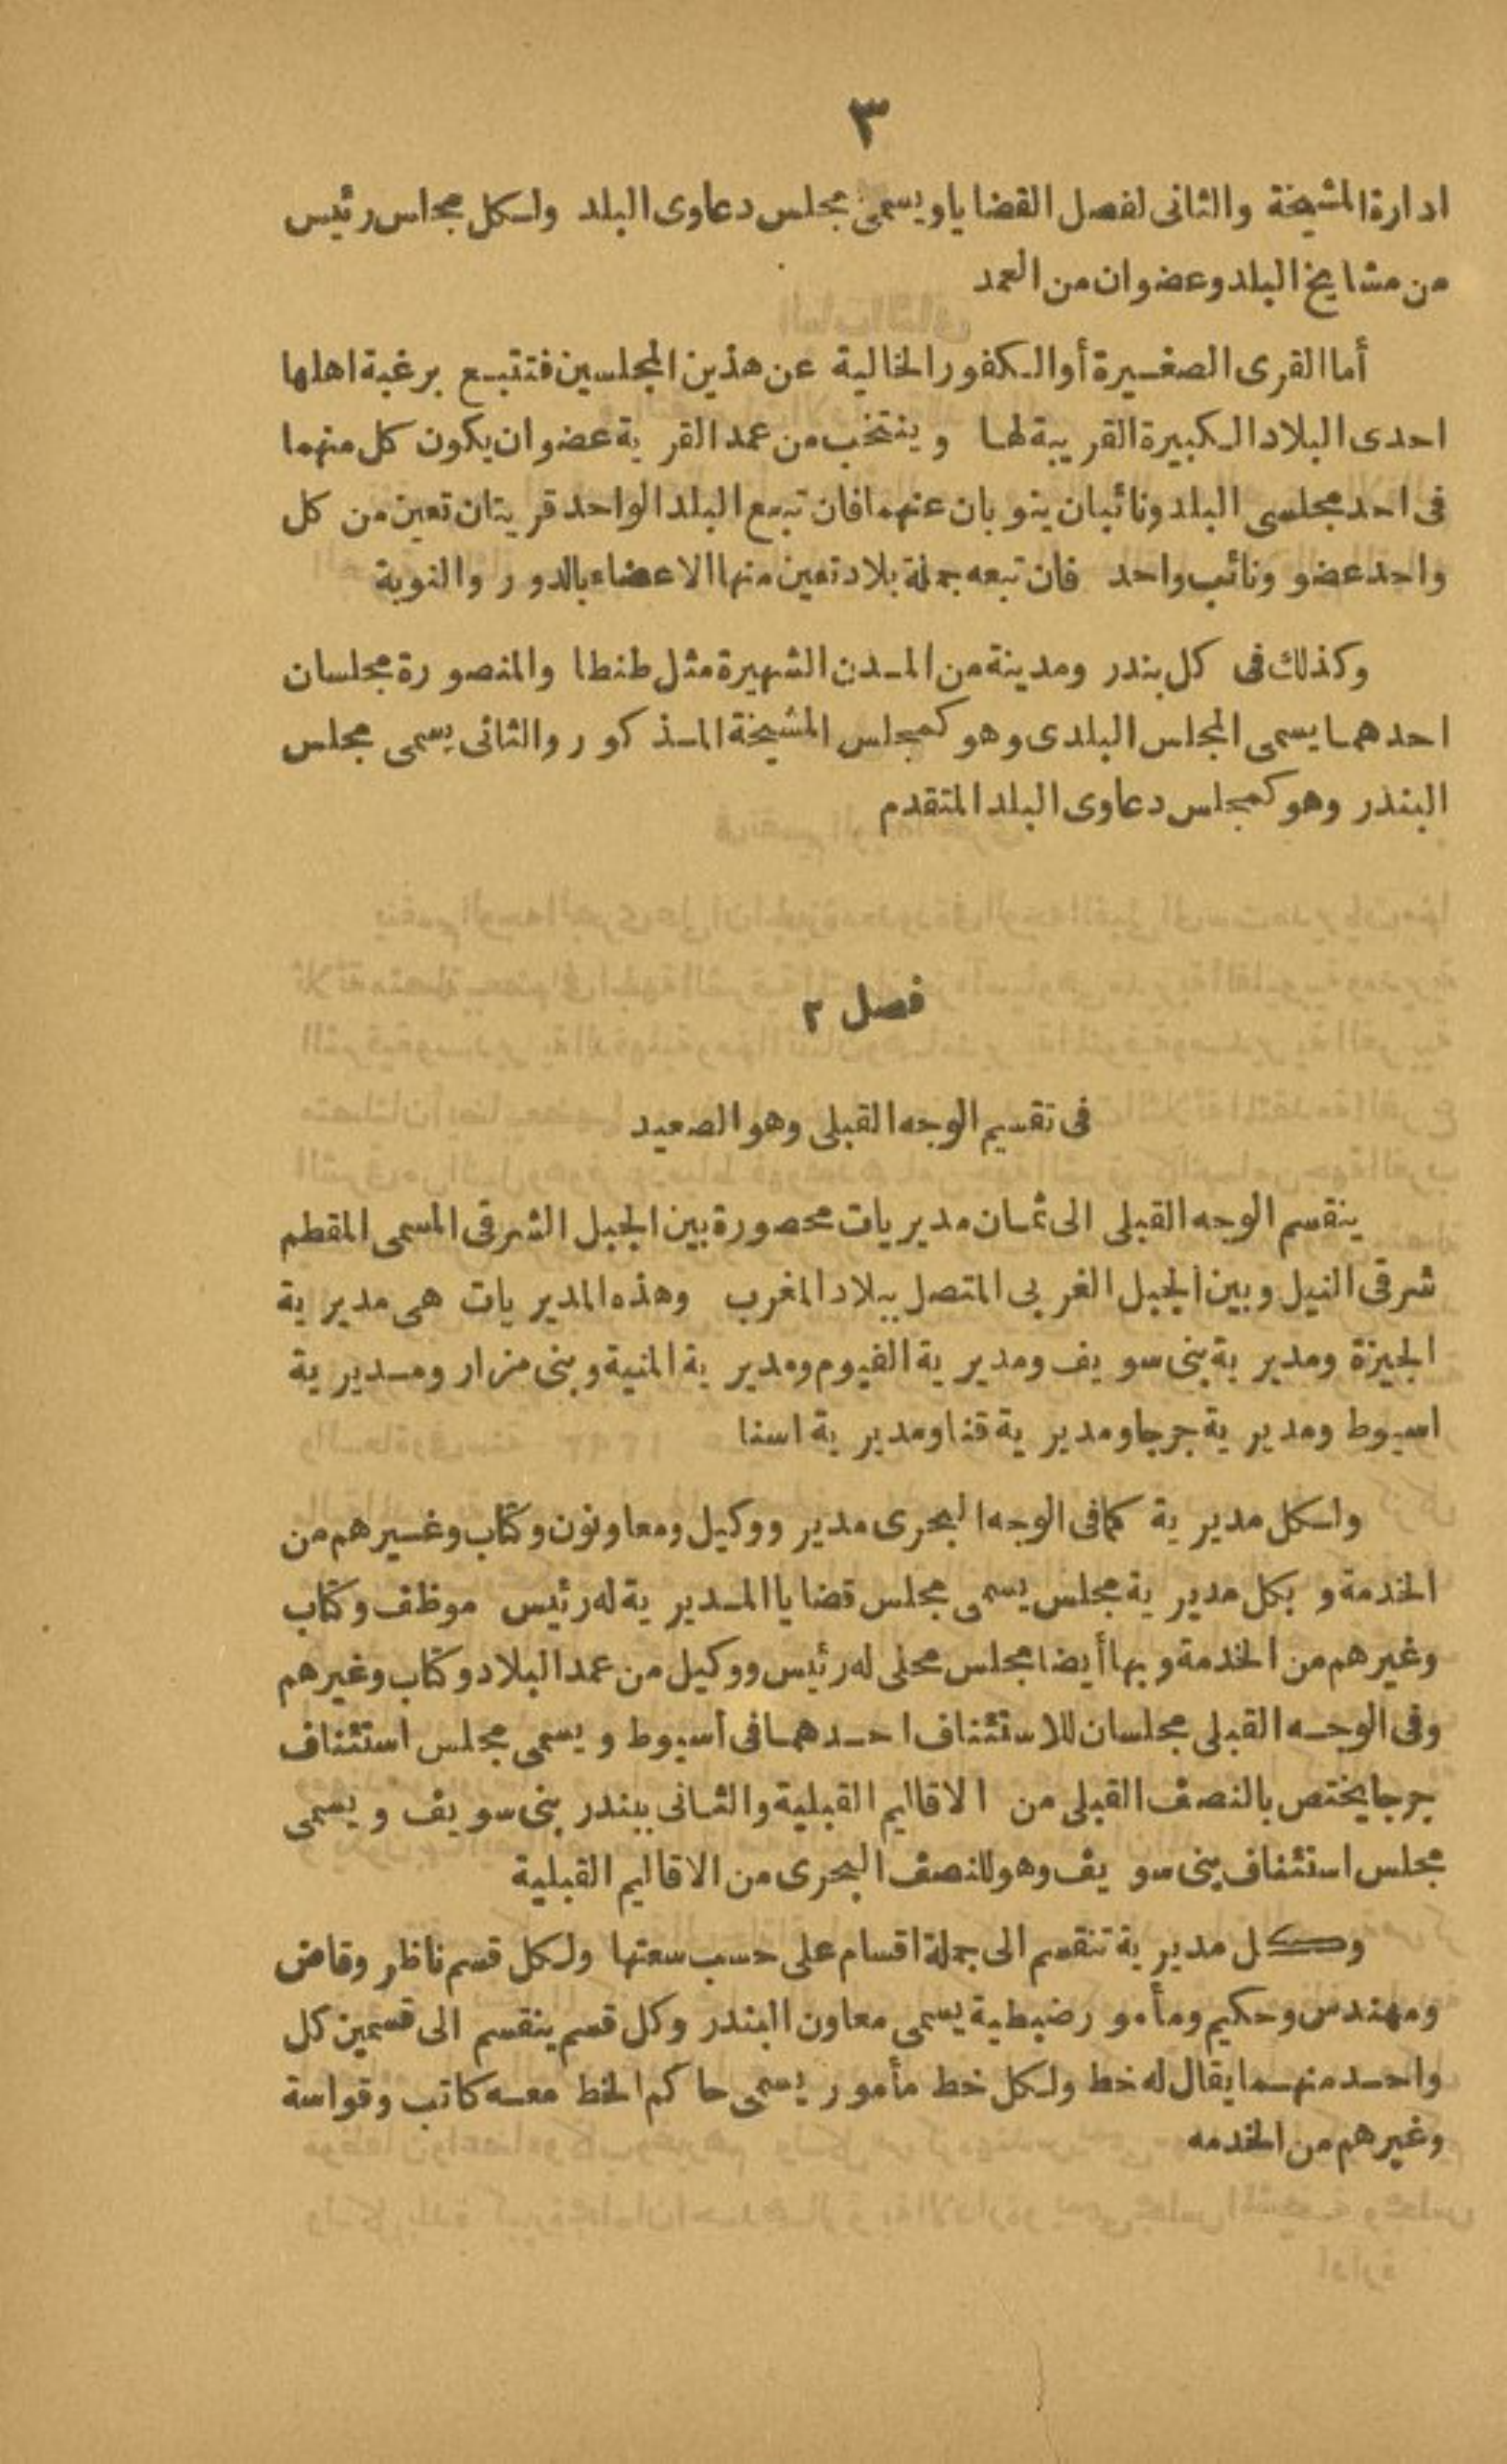 ٣
ادارة المشيخة والثانى لفصل القضايا ويسمى مجلس دعاوى البلد ولكل مجلس رئيس
من مشايخ البلد وعضوان من العمد
أما القرى الصغيرة أو الكفور الخالية عن هذين المجلسين فتتبع برغبة اهلها
احدى البلاد الكبيرة القريبة لها وينتخب من عمد القرية عضوان يكون كل منهما
فى احد مجلسى البلد ونائبان ينوبان عنهما فان تبع البلد الواحد قريتان تعين من كل
واحد عضو ونائب واحد فان تبعه جملة بلاد تعين منها الاعضاء بالدور والنوبة
وكذلك فى كل بندر ومدينة من المدن الشهيرة مثل طنطا والمنصورة مجلسان
احدهما يسمى المجلس البلدى وهو كمجلس المشيخة المذكور والثانى يسمى مجلس
البندر وهو كمجلس دعاوى البلد المتقدم
فصل ٢
فى تقسيم الوجه القبلى وهو الصعيد
ينقسم الوجه القبلى الى ثمان مديريات محصورة بين الجبل الشرقى المسمى المقطم
شرقى النيل وبين الجبل الغربى المتصل ببلاد المغرب وهذه المديريات هى مديرية
الجيزة ومديرية بنى سويف ومديرية الفيوم ومديرية المنية وبنى مزار ومديرية
اسيوط ومديرية جرجا ومديرية قنا ومديرية اسنا
ولكل مديرية كما فى الوجه البحرى مدير ووكيل ومعاونون وكتاب وغيرهم من
الخدمة وبكل مديرية مجلس يسمى مجلس قضايا المديرية له رئيس موظف وكتاب
وغيرهم من الخدمة وبها أيضا مجلس محلى له رئيس ووكيل من عمد البلاد وكتاب وغيرهم
وفى الوجه القبلى مجلسان للاستئناف احدهما فى أسيوط ويسمى مجلس استئناف
جرجا يختص بالنصف القبلى من الاقاليم القبلية والثانى ببندر بنى سويف ويسمى
مجلس استئناف بنى سويف وهو للنصف البحرى من الاقاليم القبلية
وكل مديرية تنقسم الى جملة اقسام على حسب سعتها ولكل قسم ناظر وقاض
ومهندس وحكيم ومأمور ضبطية يسمى معاون البندر وكل قسم ينقسم الى قسمين كل
واحد منهما يقال له خط ولكل خط مأمور يسمى حاكم الخط معه كاتب وقواسة
وغيرهم من الخدمه